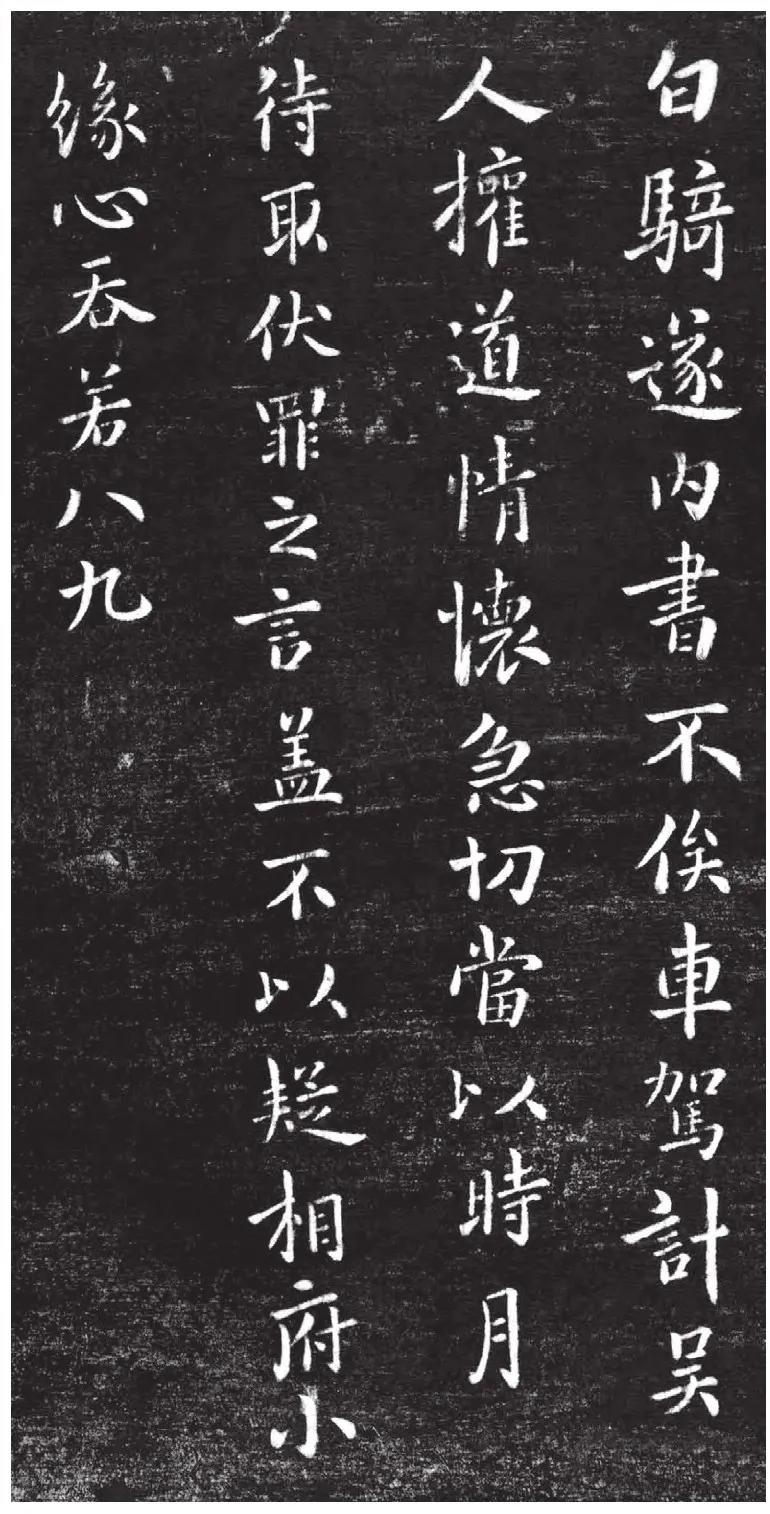 白騎遂內書不俟車駕計吴
人擁道情懷急切當以時月
待取伏罪之言盖不以疑相府小
緣心吞若八九